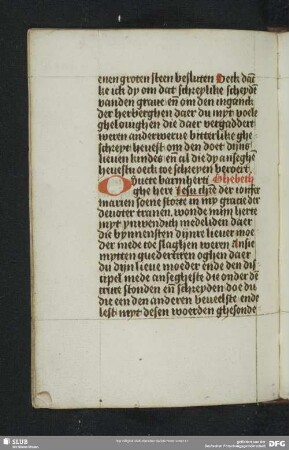 enen groten steen besluten Oeck dāc
ke ick dy om dat schreylike scheydē
vanden graue eñ om den inganck
der herberghen daer du myt vock
gheloughen die daer vergaddert
weren anderwerue bitterlike ghe
schreyt heuest om den doet dijns
lieuen kindes eñ al die dy anseghē
heuestu oeck toe schreyen beroert
O duete barmherti Ghebeth
ghe here Jesu christe der ioncfer
marien soene storte in my gracie der
deuoter tranen wonde mijn herte
myt ynwendich medeliden daer
die bynnensten dijnre lieuer moe
der mede toe slaghen weren Ansie
mytten guedertiren oghen daer
du dijn lieue moeder ende den dis
cipel mede ansegheste die onder dē
cruce stonden eñ schreyden doe du
die een den anderen beuelste ende
lest myt desen woerden ghesonde
SLUB